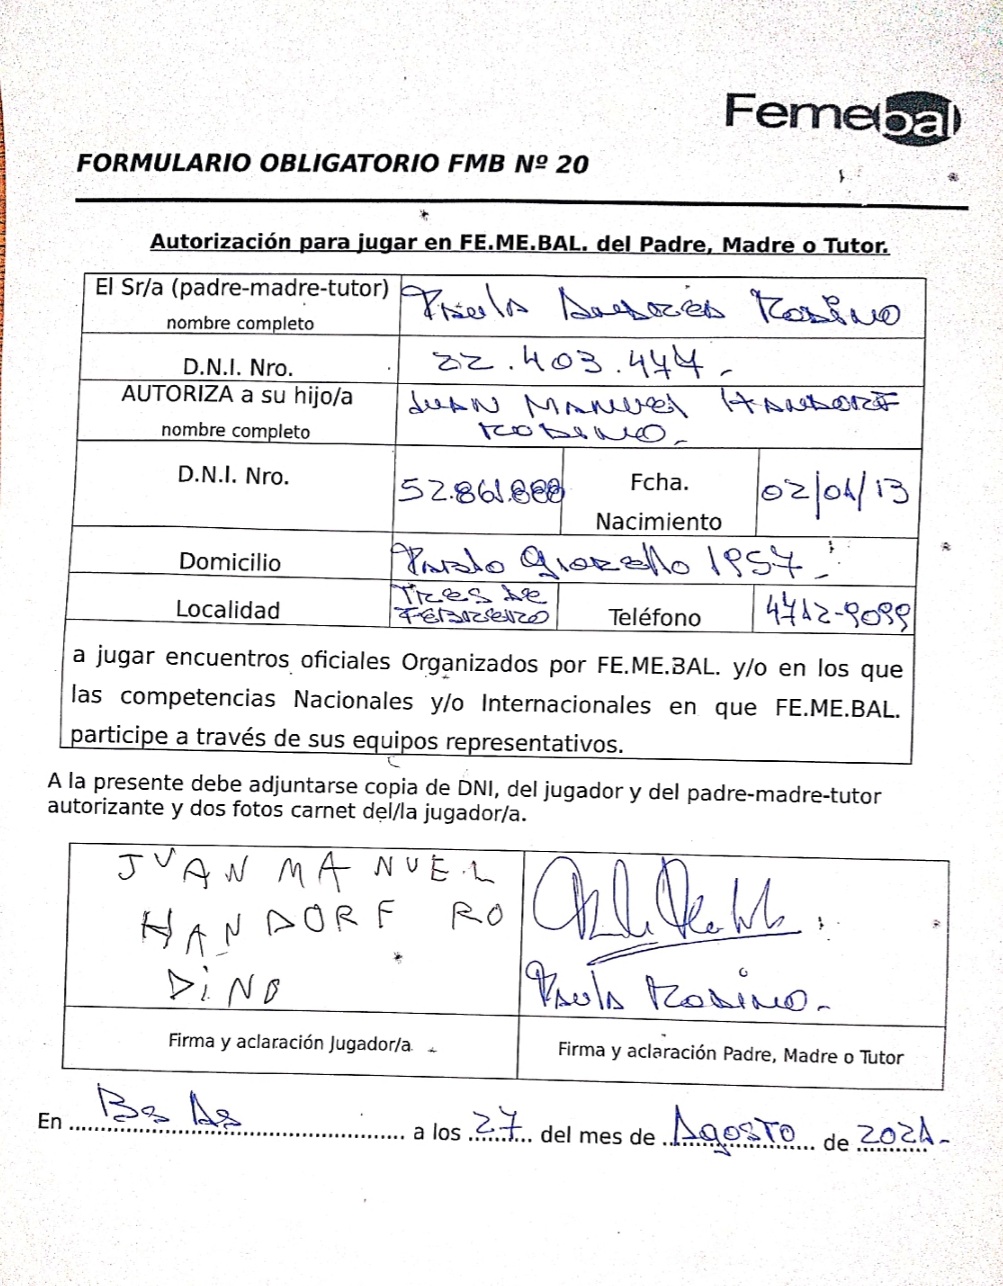 Femebal
FORMULARIO OBLIGATORIO FMB Nº 20
Autorización para jugar en FE.ME.BAL. del Padre, Madre o Tutor.
El Sr/a (padre-madre-tutor) Paula Rodino
nombre completo
D.N.I. Nro. 22.403.477.-
AUTORIZA a su hijo/a JUAN MANUEL HANDORF
nombre completo RODINO.-
D.N.I. Nro. 52.861.888 Fcha. 02/01/13
Nacimiento
Domicilio Pardo 1957.-
TRES DE
Localidad FEBRERO Teléfono 4712-9099
a jugar encuentros oficiales Organizados por FE.ME.BAL. y/o en los que
las competencias Nacionales y/o Internacionales en que FE.ME.BAL.
participe a través de sus equipos representativos.
A la presente debe adjuntarse copia de DNI, del jugador y del padre-madre-tutor
autorizante y dos fotos carnet del/la jugador/a.
JUAN MANUEL
HANDORF RO
DiNO
Paula Rodino.-
Firma y aclaración Jugador/a Firma y aclaración Padre, Madre o Tutor
En Bs As a los 27 del mes de Agosto de 2021.-